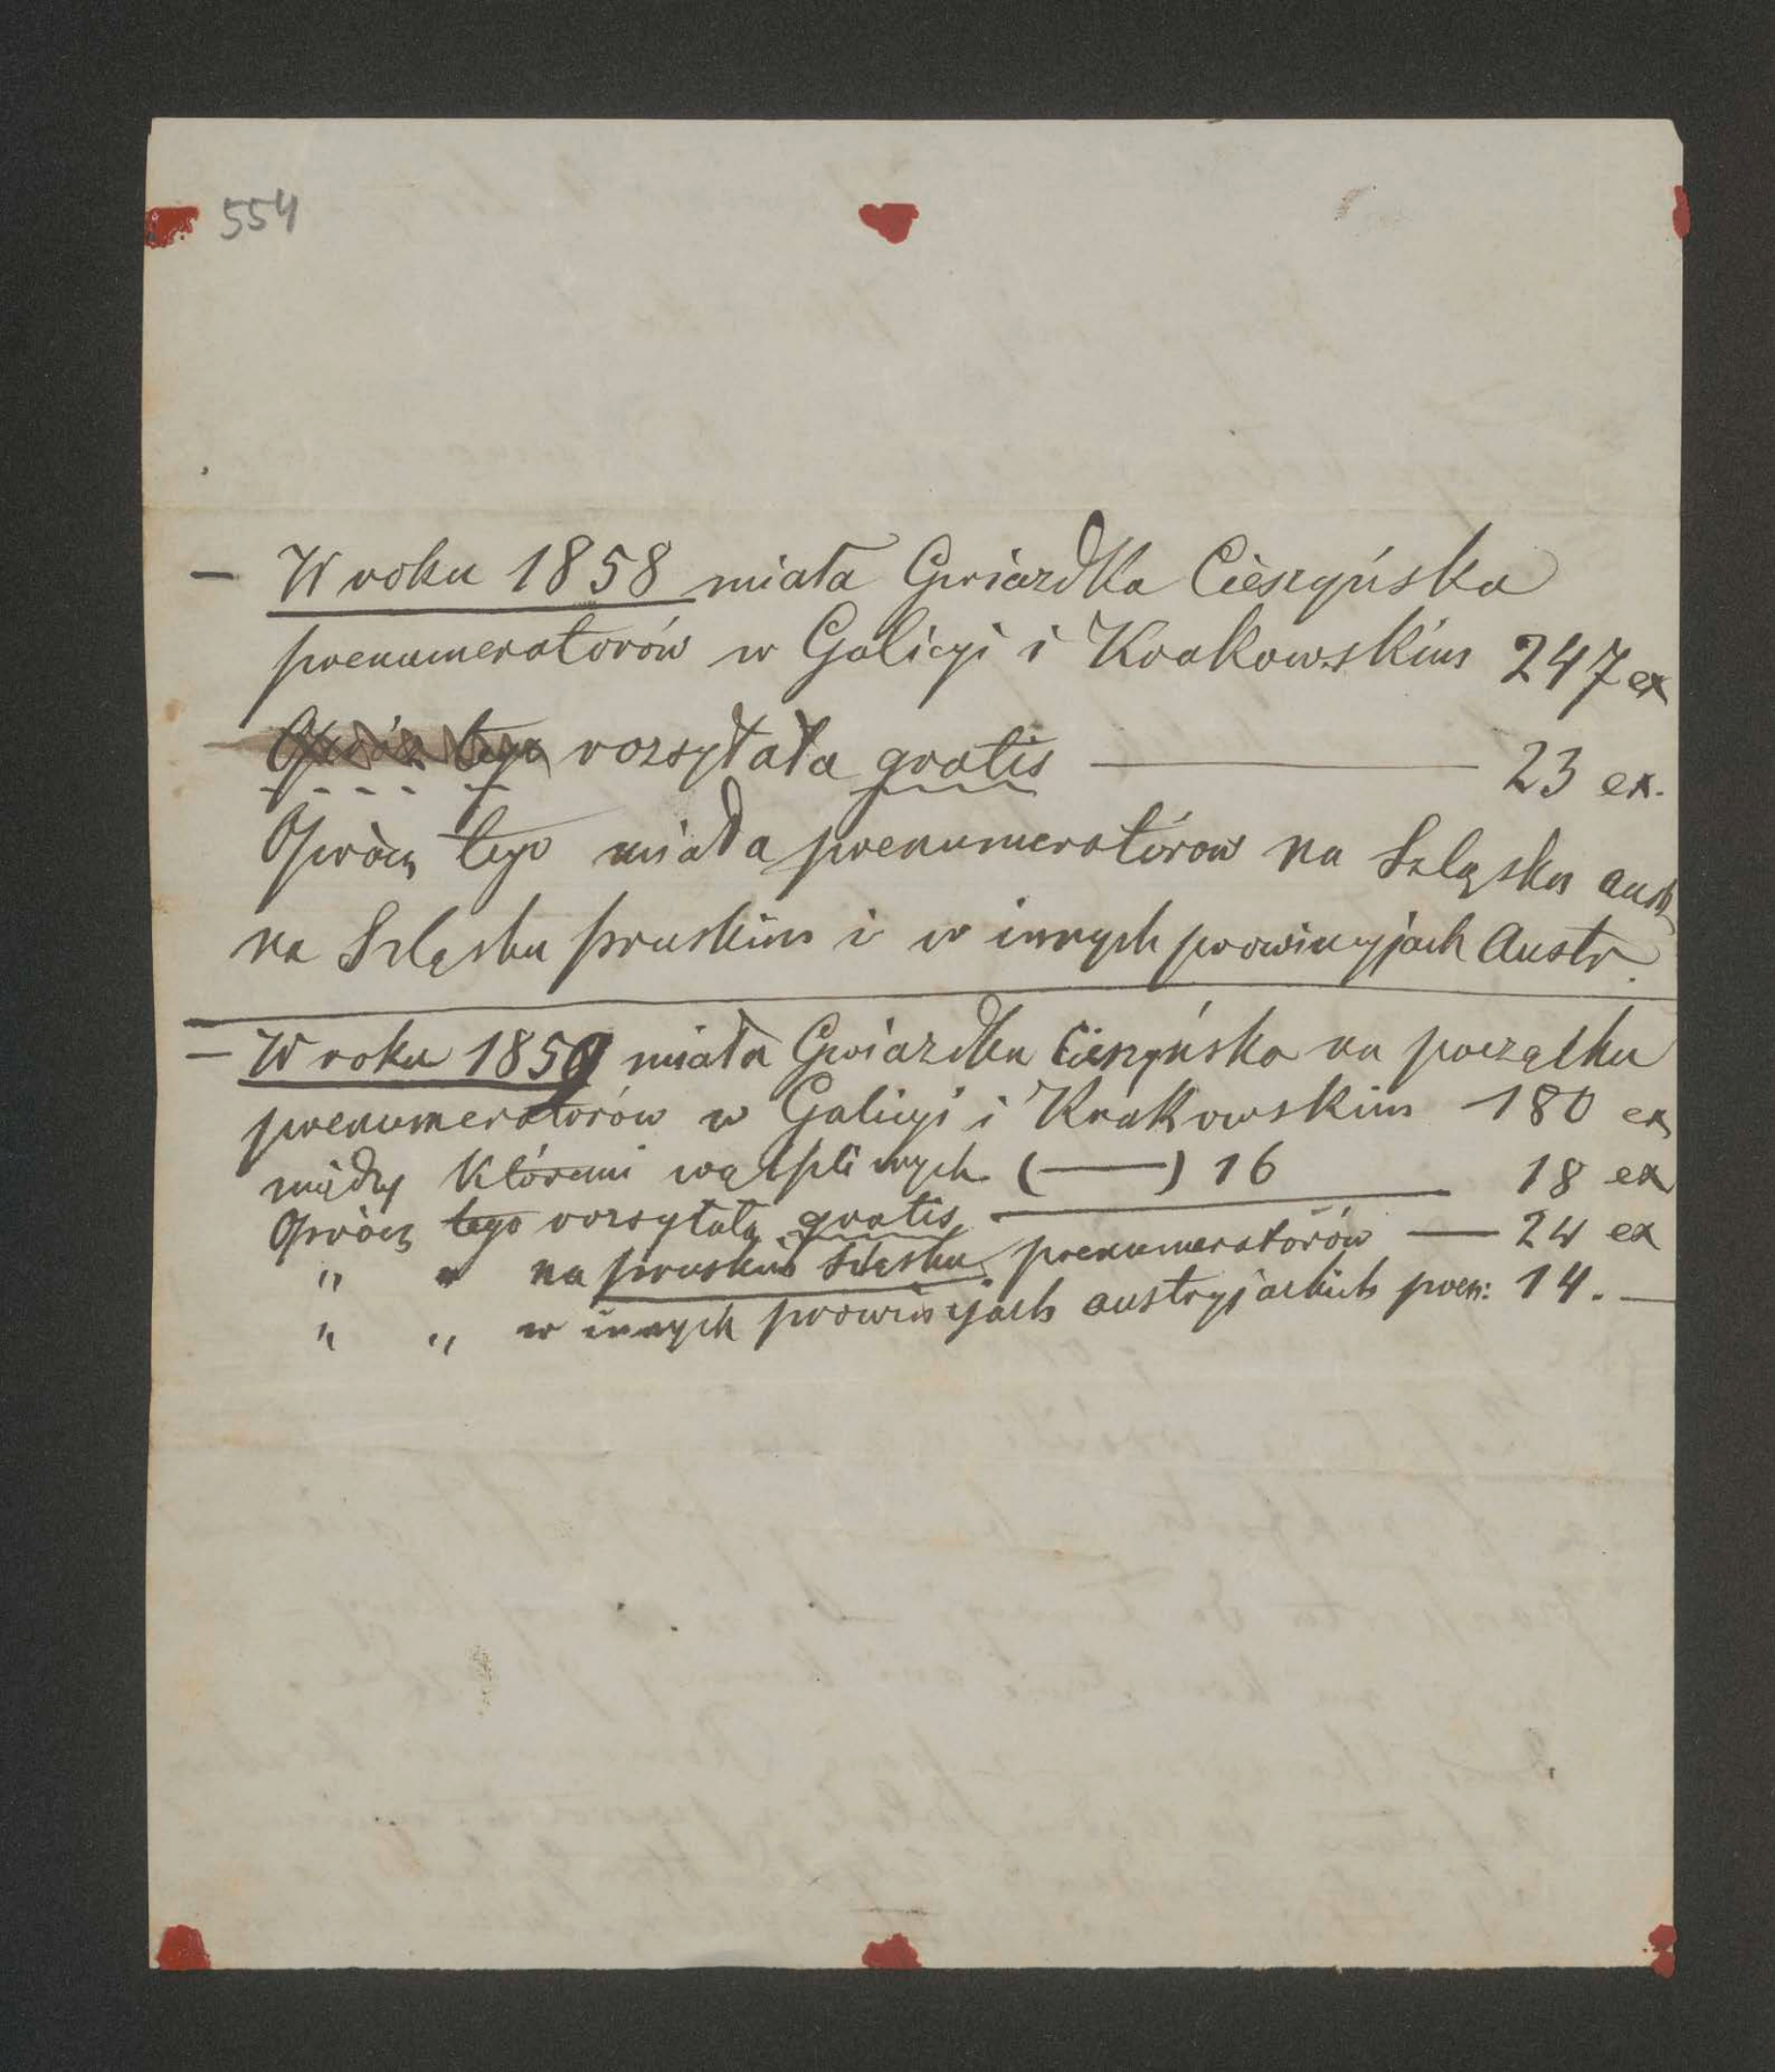 554
— W roku 1858 miała Gwiazdka Cieszyńska
prenumeratorów w Galicyi i Krakowskim 247 ex
Oprócz tego rozsyłała gratis — 23 ex.
Oprócz tego miała prenumeratorów na Szląsku austr
na Szląsku pruskim i w innych prowincyjach Austr.
— W roku 1859 miała Gwiazdka Cieszyńska na początku
prenumeratorów w Galicyi i Krakowskim 180 ex
między któremi wątpliwych (—) 16
Oprócz tego rozsyłała gratis — 18 ex
" " na pruskim Szląsku prenumeratorów — 24 ex
" " w innych prowincyjach austryjackich pren: 14. —